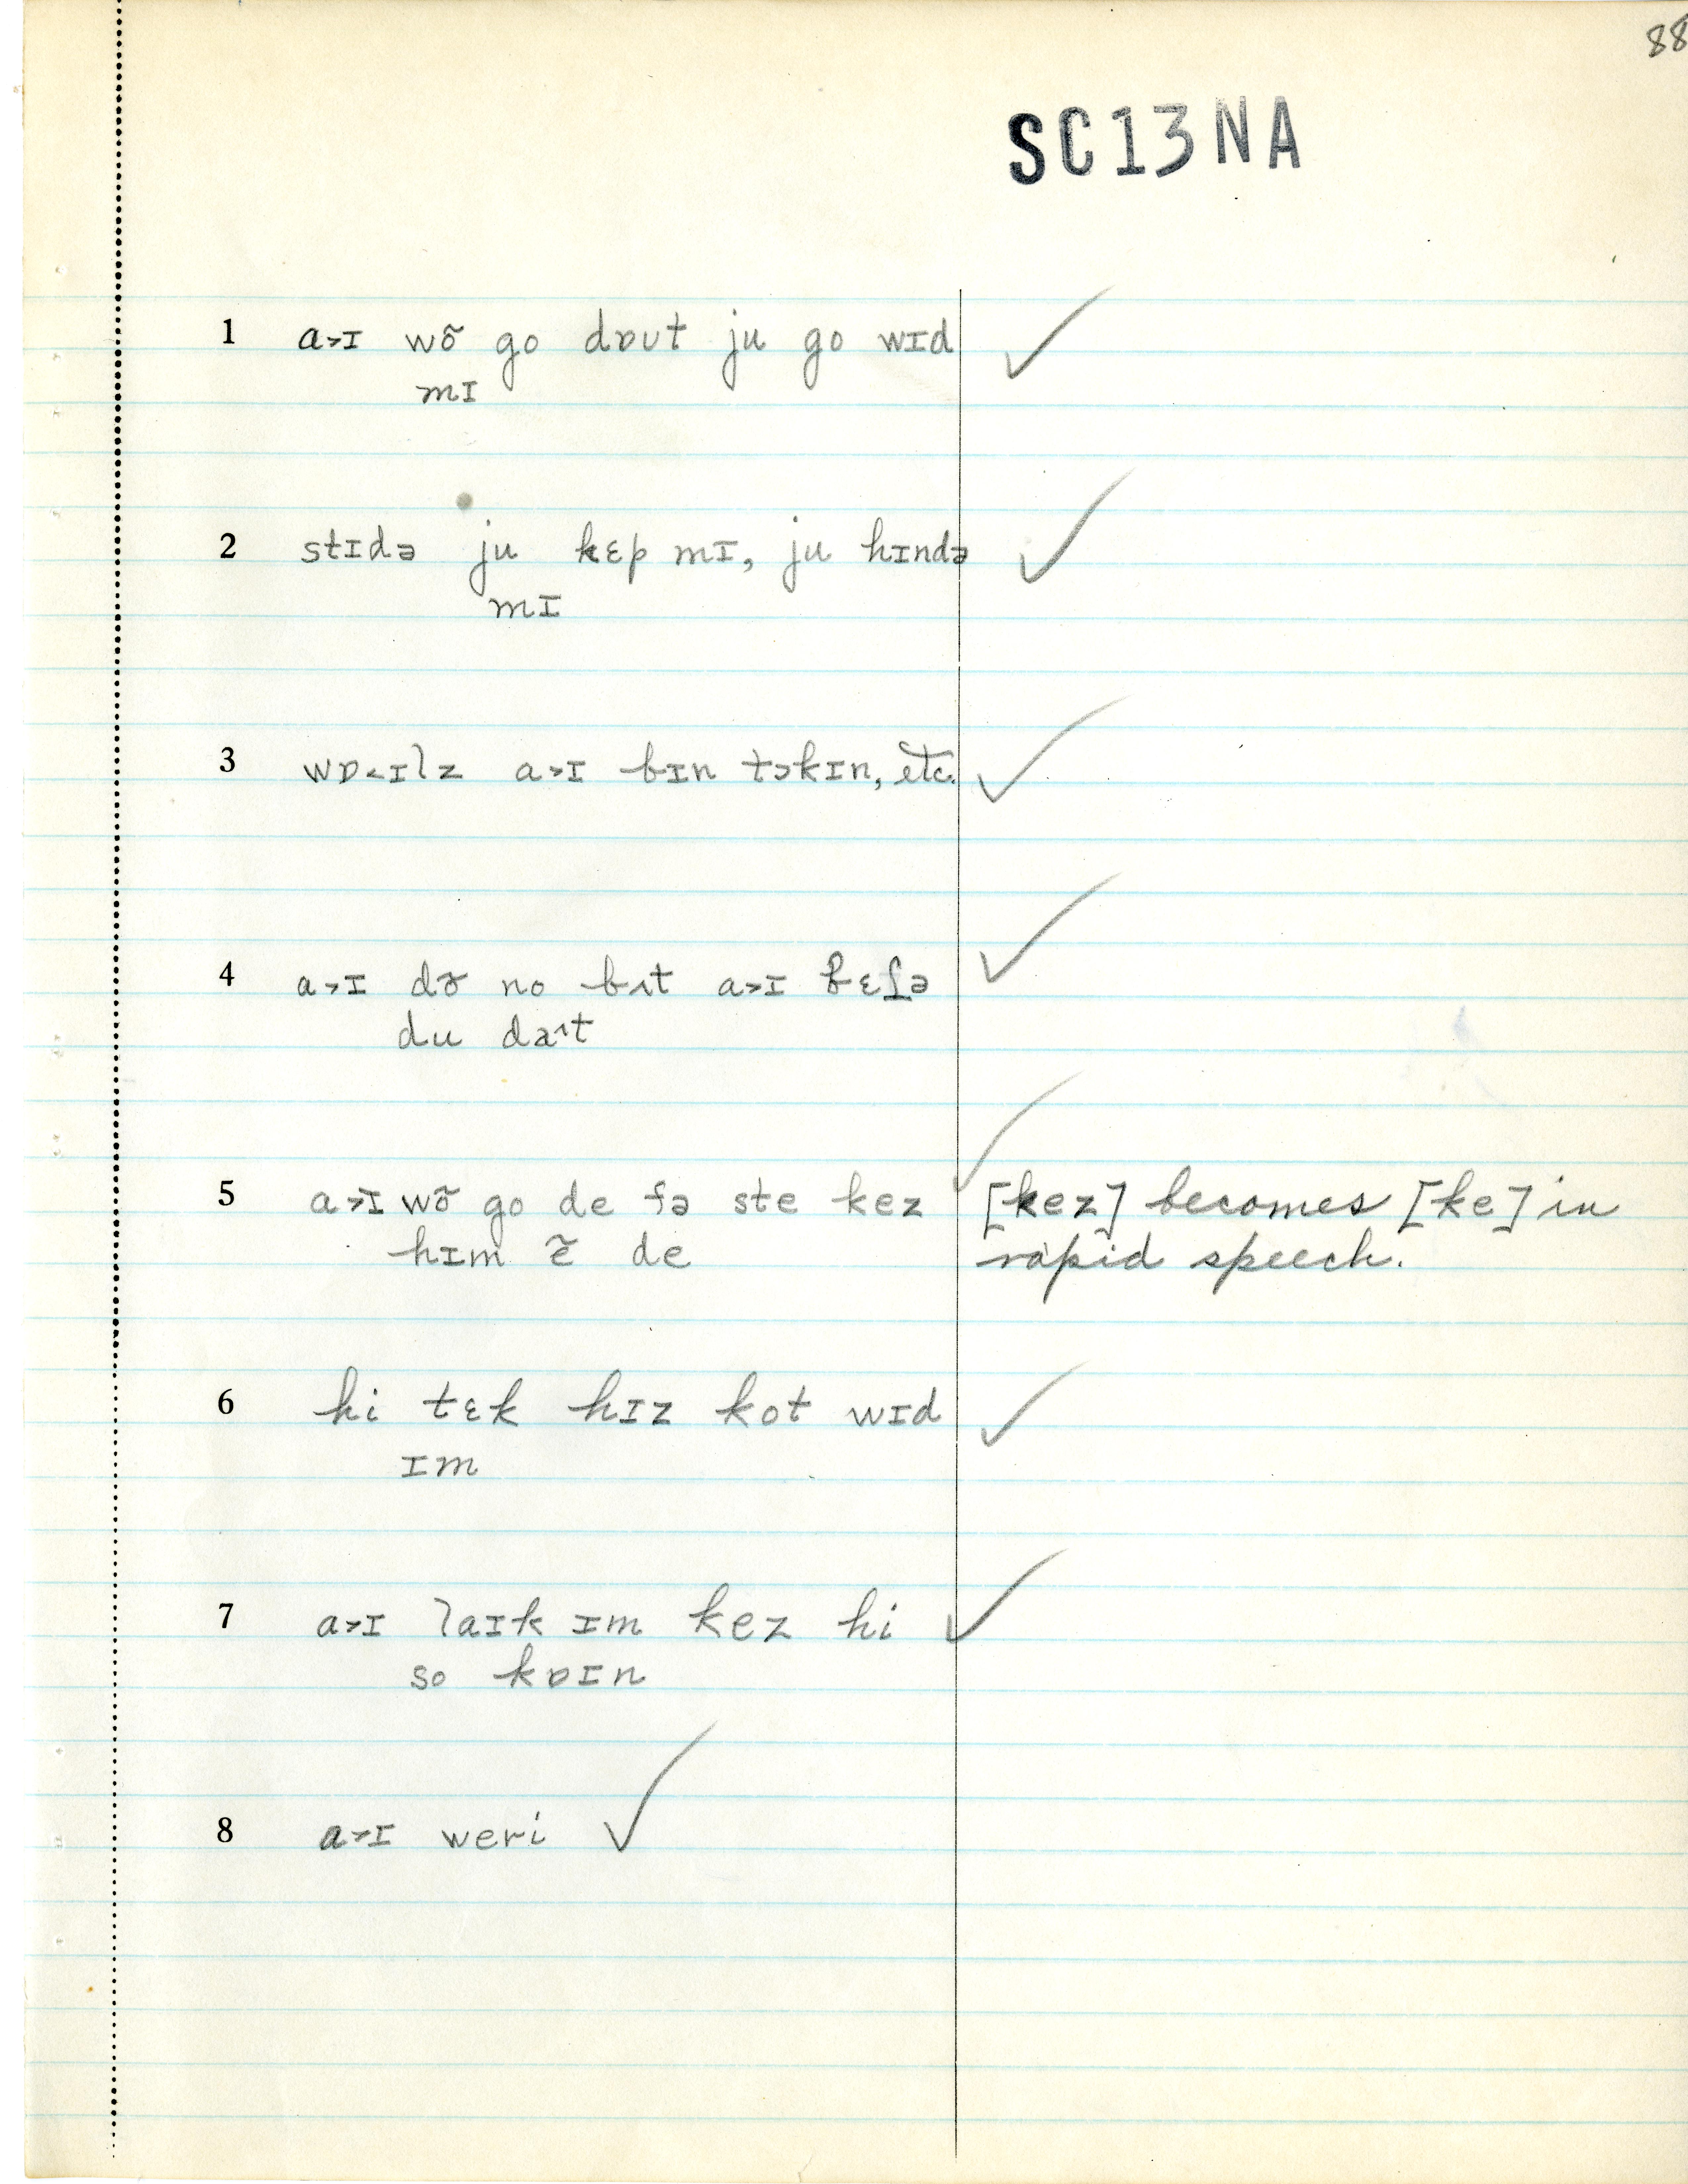 88
SC13NA
1 a˃ɪ wõ go dɒut ju go wɪd
mɪ
2 stɪdə ju kɛp mɪ, ju hɪndə
mɪ
3 wɒ˂ɪlz a˃ɪ bɪn tɔkɪn, etc.
4 a˃ɪ dõ no bʌt a˃ɪ
du dat
5 a˃ɪ wõ go de fə ste kez [kez] becomes [ke] in
hɪm ẽ de rapid speech.
6 hi tɛk hɪz kot wɪd
ɪm
7 a˃ɪ laɪk ɪm kez hi
so kɒɪn
8 a˃ɪ weri